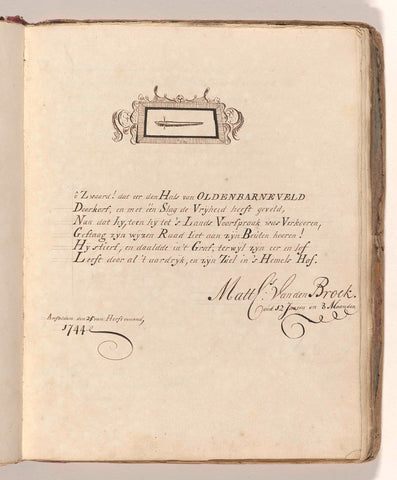 't Zwaard! dat eer den Hals van OLDENBARNEVELD
Doorkorf, en met één Slag de Vryheid heeft geveld,
Nan dat hy, toen hy tot 's Lands Voorspraak was Verkooren,
Gestaag zyn wyzen Raad liet aan zyn
Hy stierf, en daaldde in 't Graf, terwyl zyn eer en lof
Leeft door al 't aardryk, en zyn Ziel in 's Hemels Hof.
Matt. Van den Broek.
oud 12 Jaaren en 8 Maanden
den 25 van Herfstmaand,
1744